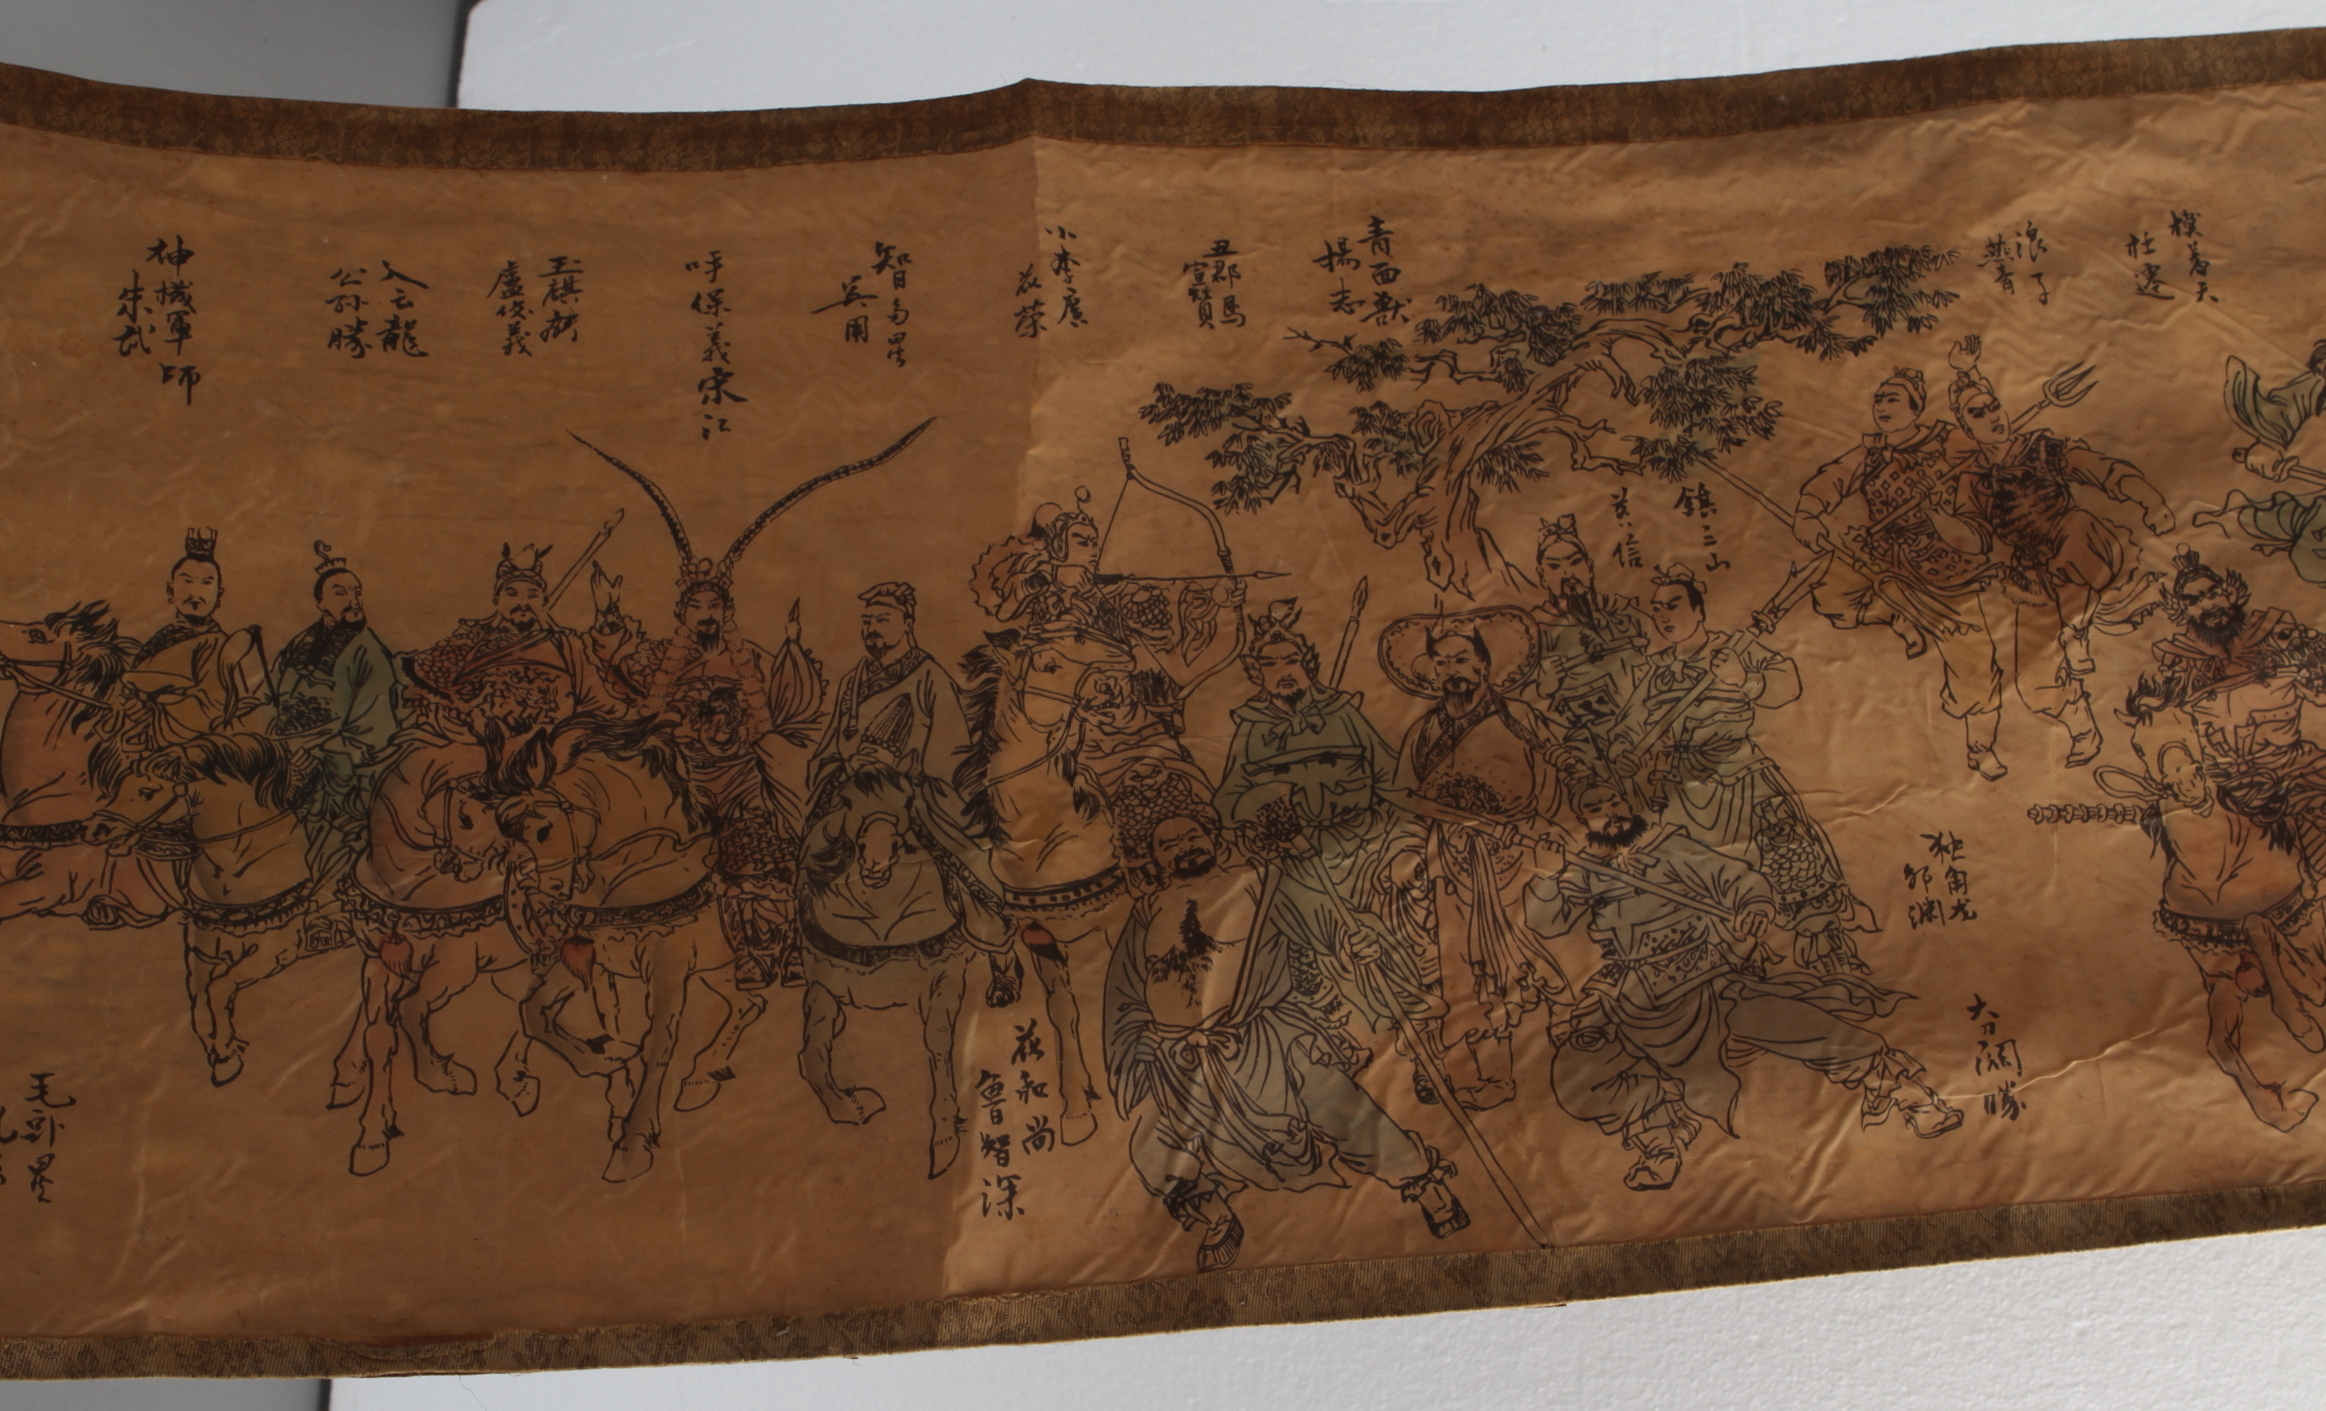 摸着天
杜遷
浪子
燕青
独角龙
邹渊
大刀関勝
鎮三山
黄信
青面獸
楊志
丑郡馬
宣贊
小李廣
花榮
花和尚
魯智深
智多星
吴用
呼保義宋江
玉麒麟
盧俊義
入云龍
公孙勝
神機軍師
朱武
毛头星